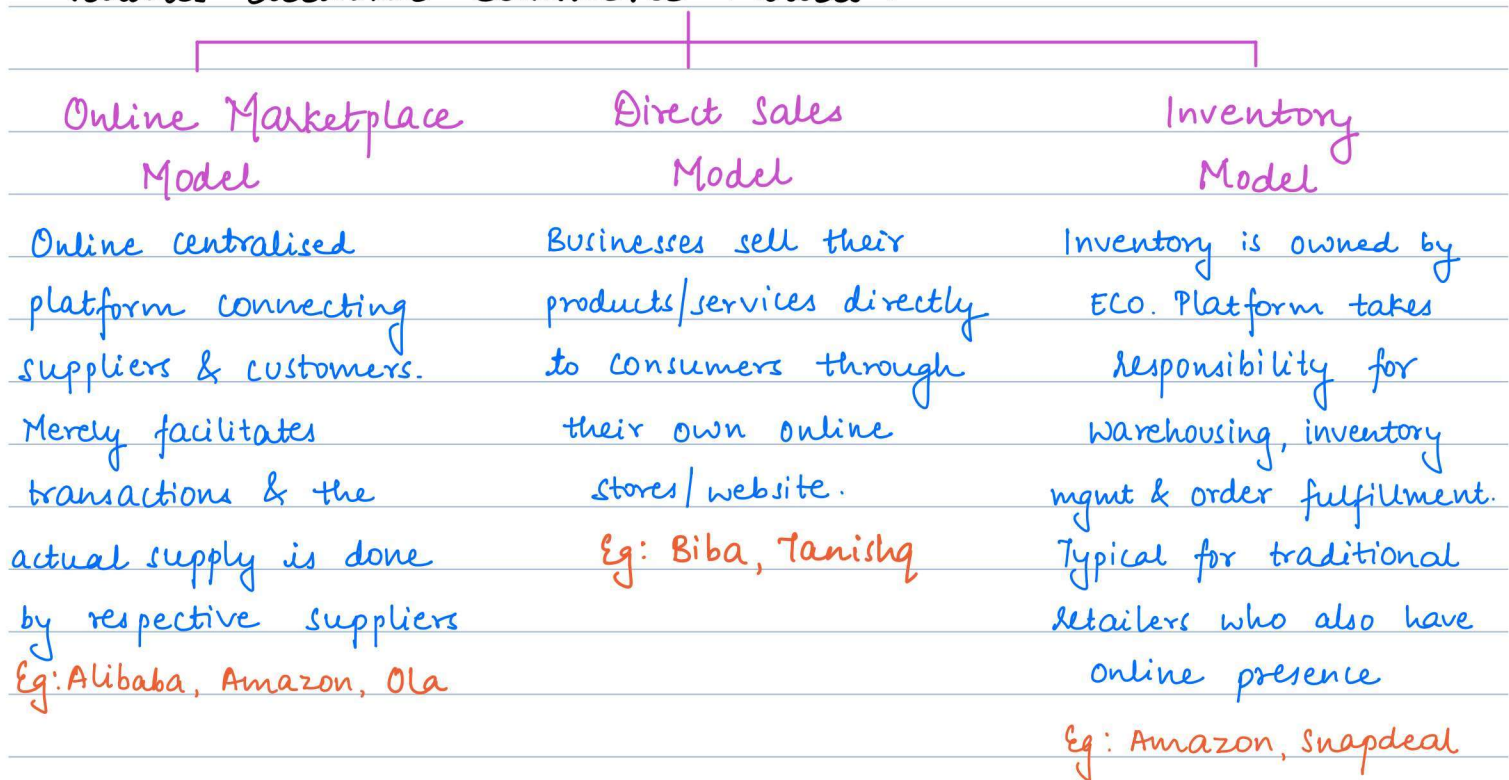 Online Marketplace
Model
Online centralised
platform connecting
suppliers & customers.
Merely facilitates
transactions & the
actual supply is done
by respective suppliers
Eg: Alibaba, Amazon, Ola
Direct Sales
Model
Businesses sell their
products/services directly
to consumers through
their own online
stores/website.
Eg: Biba, Tanishq
Inventory
Model
Inventory is owned by
ECO. Platform takes
responsibility for
warehousing, inventory
mgmt & order fulfillment.
Typical for traditional
retailers who also have
online presence
Eg: Amazon, Snapdeal